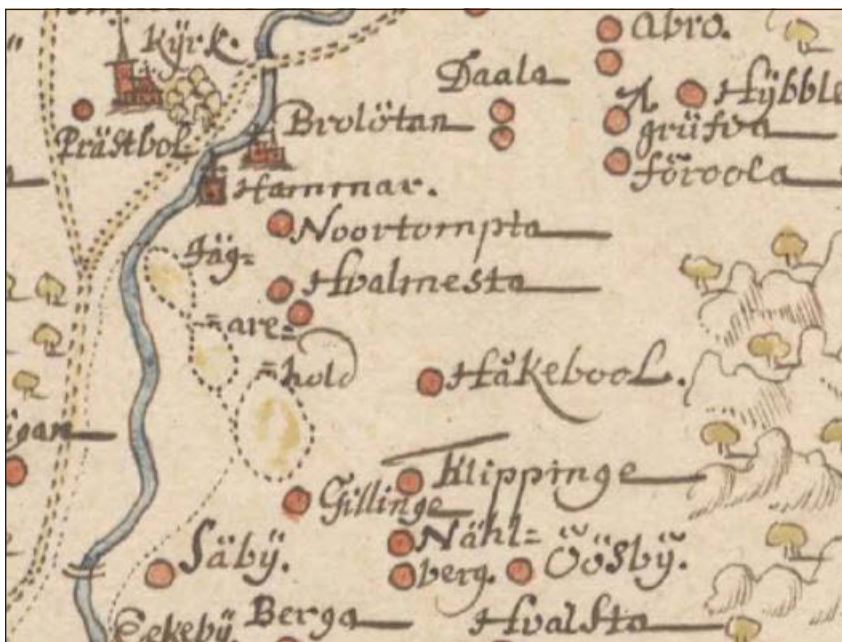 Kÿrk.
Abro.
Daala
Hÿbble
Prästbol
Brolötan
grüfva
föroola
Hammar.
Noortompta
Jäg=
Hvalmesta
=are=
=hold
Håkebool.
Klippinge
Gillinge
Nähl=
berg.
Säbÿ.
Öösbÿ.
Eekebÿ
Berga
Hvalsta